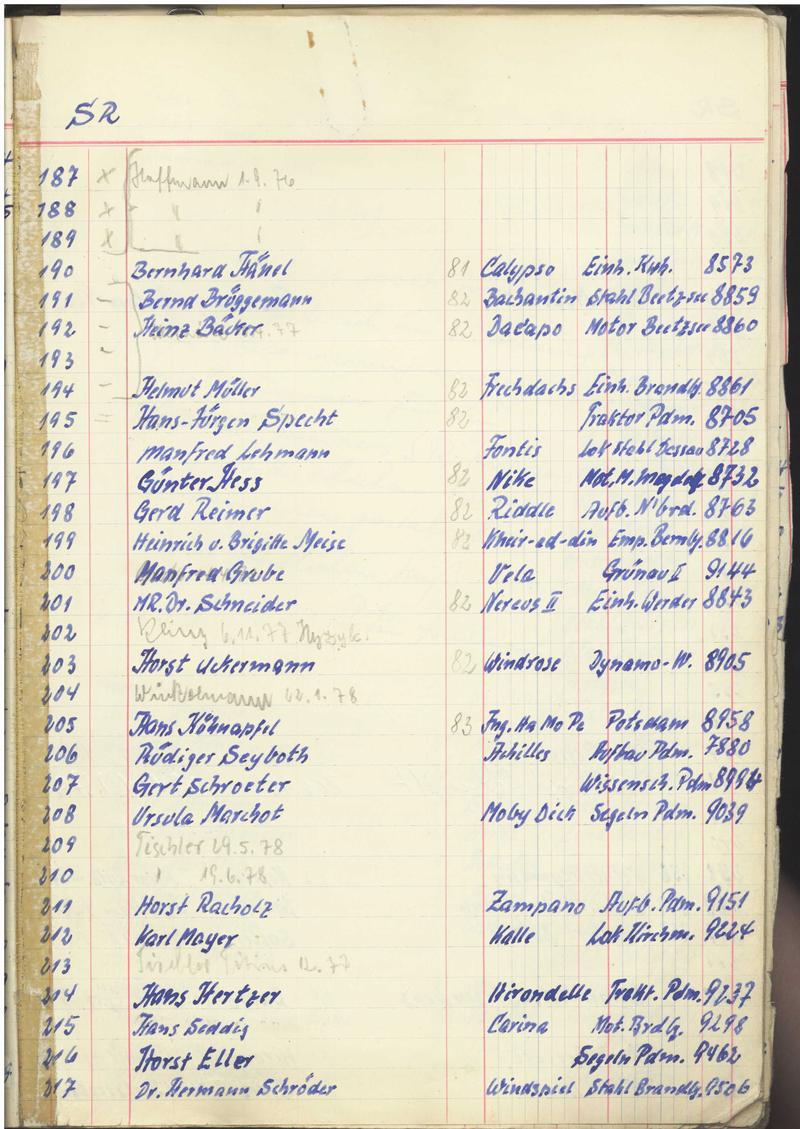 SR
187 x Hoffmann 1.9.76
188 x " "
189 x " "
190 Bernhard Hänel 81 Calypso Einh. Kwh. 8573
191 - Bernd Brüggemann 82 Bachantin Stahl Beetzsee 8859
192 - Heinz Bäcker 82 Dacapo Motor Beetzsee 8860
193 -
194 - Helmut Müller 82 Frechdachs Einh. Brandbg. 8861
195 = Hans-Jürgen Specht 82 Traktor Pdm. 8705
196 Manfred Lehmann Fontis Lok Stahl Dessau 8728
197 Günter Hess 82 Nike Mot. M. Magdebg 8732
198 Gerd Reimer 82 Riddle Aufb. N'brd. 8763
199 Heinrich u. Brigitte Meise 82 Kheir-ed-din Emp. Bernbg. 8816
200 Manfred Grube Vela Grünau I 9144
201 MR. Dr. Schneider 82 Nereus II Einh. Werder 8843
202 6.11.77
203 Horst Uckermann 82 Windrose Dynamo-W. 8905
204 Winkelmann 22.1.78
205 Hans Hühnapfel 83 Ing. Ha Mo Pe Potsdam 8958
206 Rüdiger Seyboth Achilles Aufbau Pdm. 7880
207 Gert Schroeter Wissensch. Pdm 8994
208 Ursula Marchot Moby Dick Segeln Pdm. 9039
209 Tischler 29.5.78
210 " 19.6.78
211 Horst Racholz Zampano Aufb. Pdm. 9151
212 Karl Mayer Kalle Lok Kirchm. 9224
213 Tischler 12.77
214 Hans Hertzer Hirondelle Trakt. Pdm. 9237
215 Hans Seddig Carina Mot. Brdbg. 9298
216 Horst Eller Segeln Pdm. 9462
217 Dr. Hermann Schröder Windspiel Stahl Brandbg. 9506